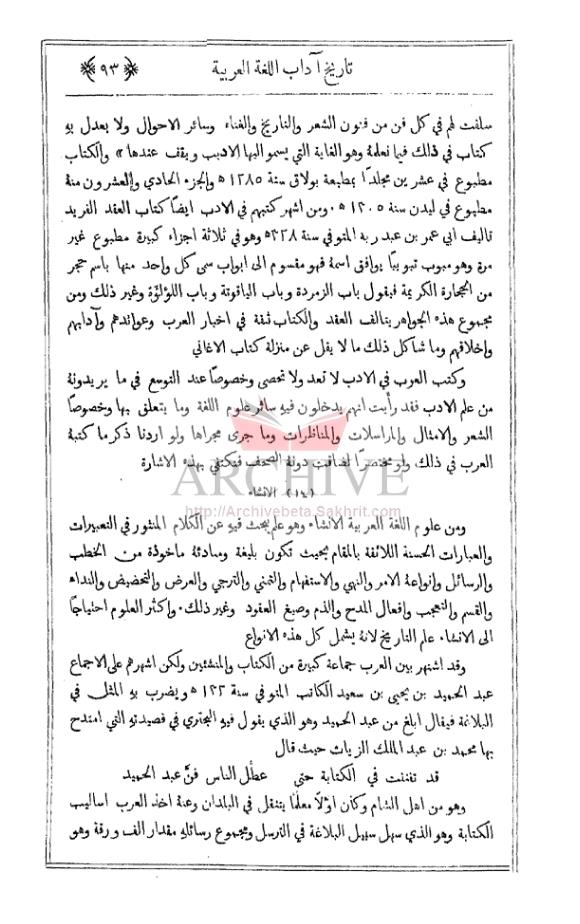 تاريخ آداب اللغة العربية ﴿٩٣﴾
سلفت لهم في كل فن من فنون الشعر والتاريخ والغناء وسائر الاحوال ولا يعدل به
كتاب في ذلك فيما نعلمة وهو الغاية التي يسمو اليها الاديب ويقف عندها» والكتاب
مطبوع في عشرين مجلدًا بمطبعة بولاق سنة ١٢٨٥ ﻫ والجزء الحادي والعشرون منة
مطبوع في ليدن سنة ١٣٠٥ ﻫ. ومن اشهر كتبهم في الادب ايضًا كتاب العقد الفريد
تاليف ابي عمر بن عبد ربه المتوفي سنة ٣٢٨ﻫ وهو في ثلاثة اجزاء كبيرة مطبوع غير
مرة وهو مبوب تبويبًا يوافق اسمة فهو مقسوم الى ابواب سمى كل واحد منها باسم حجر
من الحجارة الكريمة فيقول باب الزمردة وباب الياقوتة وباب اللؤلؤة وغير ذلك ومن
مجموع هذه الجواهر يتالف العقد والكتاب ثقة في اخبار العرب وعوائدهم وآدابهم
واخلاقهم وما شاكل ذلك ما لا يقل عن منزلة كتاب الاغاني
وكتب العرب في الادب لا تعد ولا تحصى وخصوصًا عند التوسع في ما يريدونة
من علم الادب فقد رأيت انهم يدخلون فيه سائر علوم اللغة وما يتعلق بها وخصوصًا
الشعر والامثال والمراسلات والمناظرات وما جرى مجراها ولو اردنا ذكر ما كتبة
العرب في ذلك ولو مختصرًا لضاقت دونة الصحف فنكتفي بهذه الاشارة
ARCHIVE
(١٤) الانشاء
http://Archivebeta.Sakhrit.com
ومن علوم اللغة العربية الانشاء وهو علم يبحث فيهِ عن الكلام المنثور في التعبيرات
والعبارات الحسنة اللائقة بالمقام بحيث تكون بليغة ومبادئة ماخوذة من الخطب
والرسائل وانواعة الامر والنهي والاستفهام والتمني والترجي والعرض والتحضيض والنداء
والقسم والتعجب وافعال المدح والذم وصيغ العقود وغير ذلك. واكثر العلوم احتياجًا
الى الانشاء علم التاريخ لانة يشمل كل هذه الانواع
وقد اشتهر بين العرب جماعة كبيرة من الكتاب والمنشئين ولكن اشهرهم على الاجماع
عبد الحميد بن يحيى بن سعيد الكاتب المتوفي سنة ١٣٢ ﻫ ويضرب به المثل في
البلاغة فيقال ابلغ من عبد الحميد وهو الذي يقول فيه البحتري في قصيدته التي امتدح
بها محمد بن عبد الملك الزيات حيث قال
قد تفننت في الكتابة حتى عطل الناس فنَّ عبد الحميد
وهو من اهل الشام وكان اولًا معلمًا يتنقل في البلدان وعنة اخذ العرب اساليب
الكتابة وهو الذي سهل سبيل البلاغة في الترسل ومجموع رسائله مقدار الف ورقة وهو